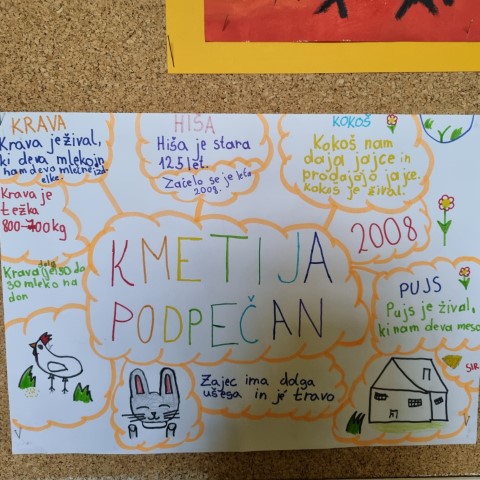 KRAVA
Krava je žival,
ki deva mleko in
nam deva mlečne iz-
elke.
Krava je
težka
800-700kg
Krava je dolg 50 do
30 mleko na
don
HIŠA
Hiša je stara
125 let.
Začelo se je leta
2008.
KOKOŠ
Kokoš nam
daja jajce in
prodajajo jajce.
Kokoš je žival.
2008
KMETIJA
PODPEČAN
PUJS
Pujs je žival,
ki nam deva meso
Zajec ima dolga
ušesa in je travo
SIR